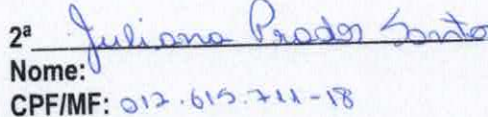 2ª Juliana Prados Santos
Nome:
CPF/MF: 012.615.711-18